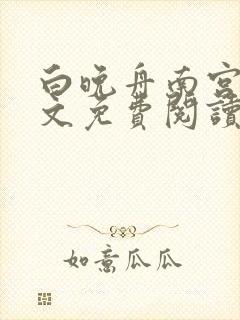 白晚舟南宫
文免費閱讀
如意瓜瓜